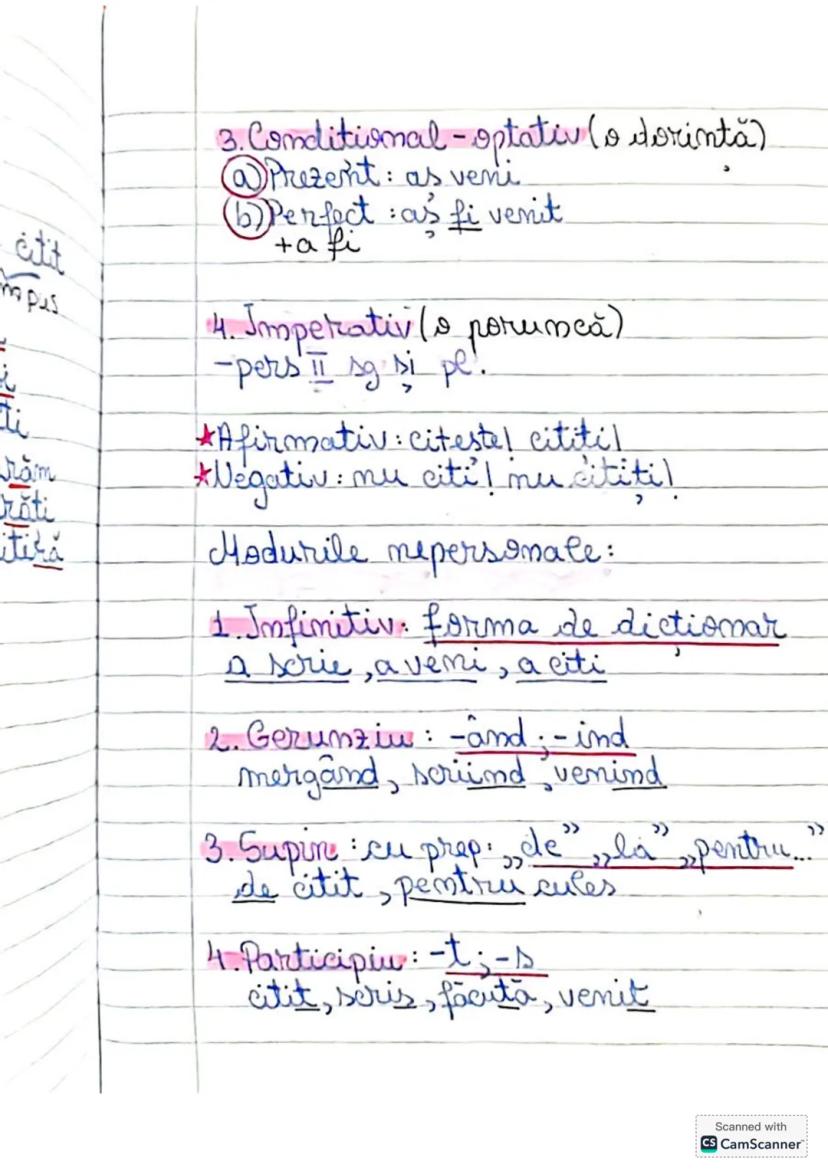 3. Conditional-optativ (o dorință)
a) Prezent: aș veni
b) Perfect: aș fi venit
+a fi
4. Imperativ (o poruncă)
-pers II sg și pl.
★Afirmativ: citește! citiți!
★Negativ: nu citi! nu citiți!
Modurile nepersonale:
1. Infinitiv: forma de dicționar
a scrie, a veni, a citi
2. Gerunziu: -ând; -ind
mergând, scriind, venind
3. Supin: cu prep: „de” „la” „pentru...”
de citit, pentru cules
4. Participiu: -t; -s
citit, scris, făcută, venit
citit
mpus
i
ti
răm
răti
itiră
Scanned with
CS CamScanner